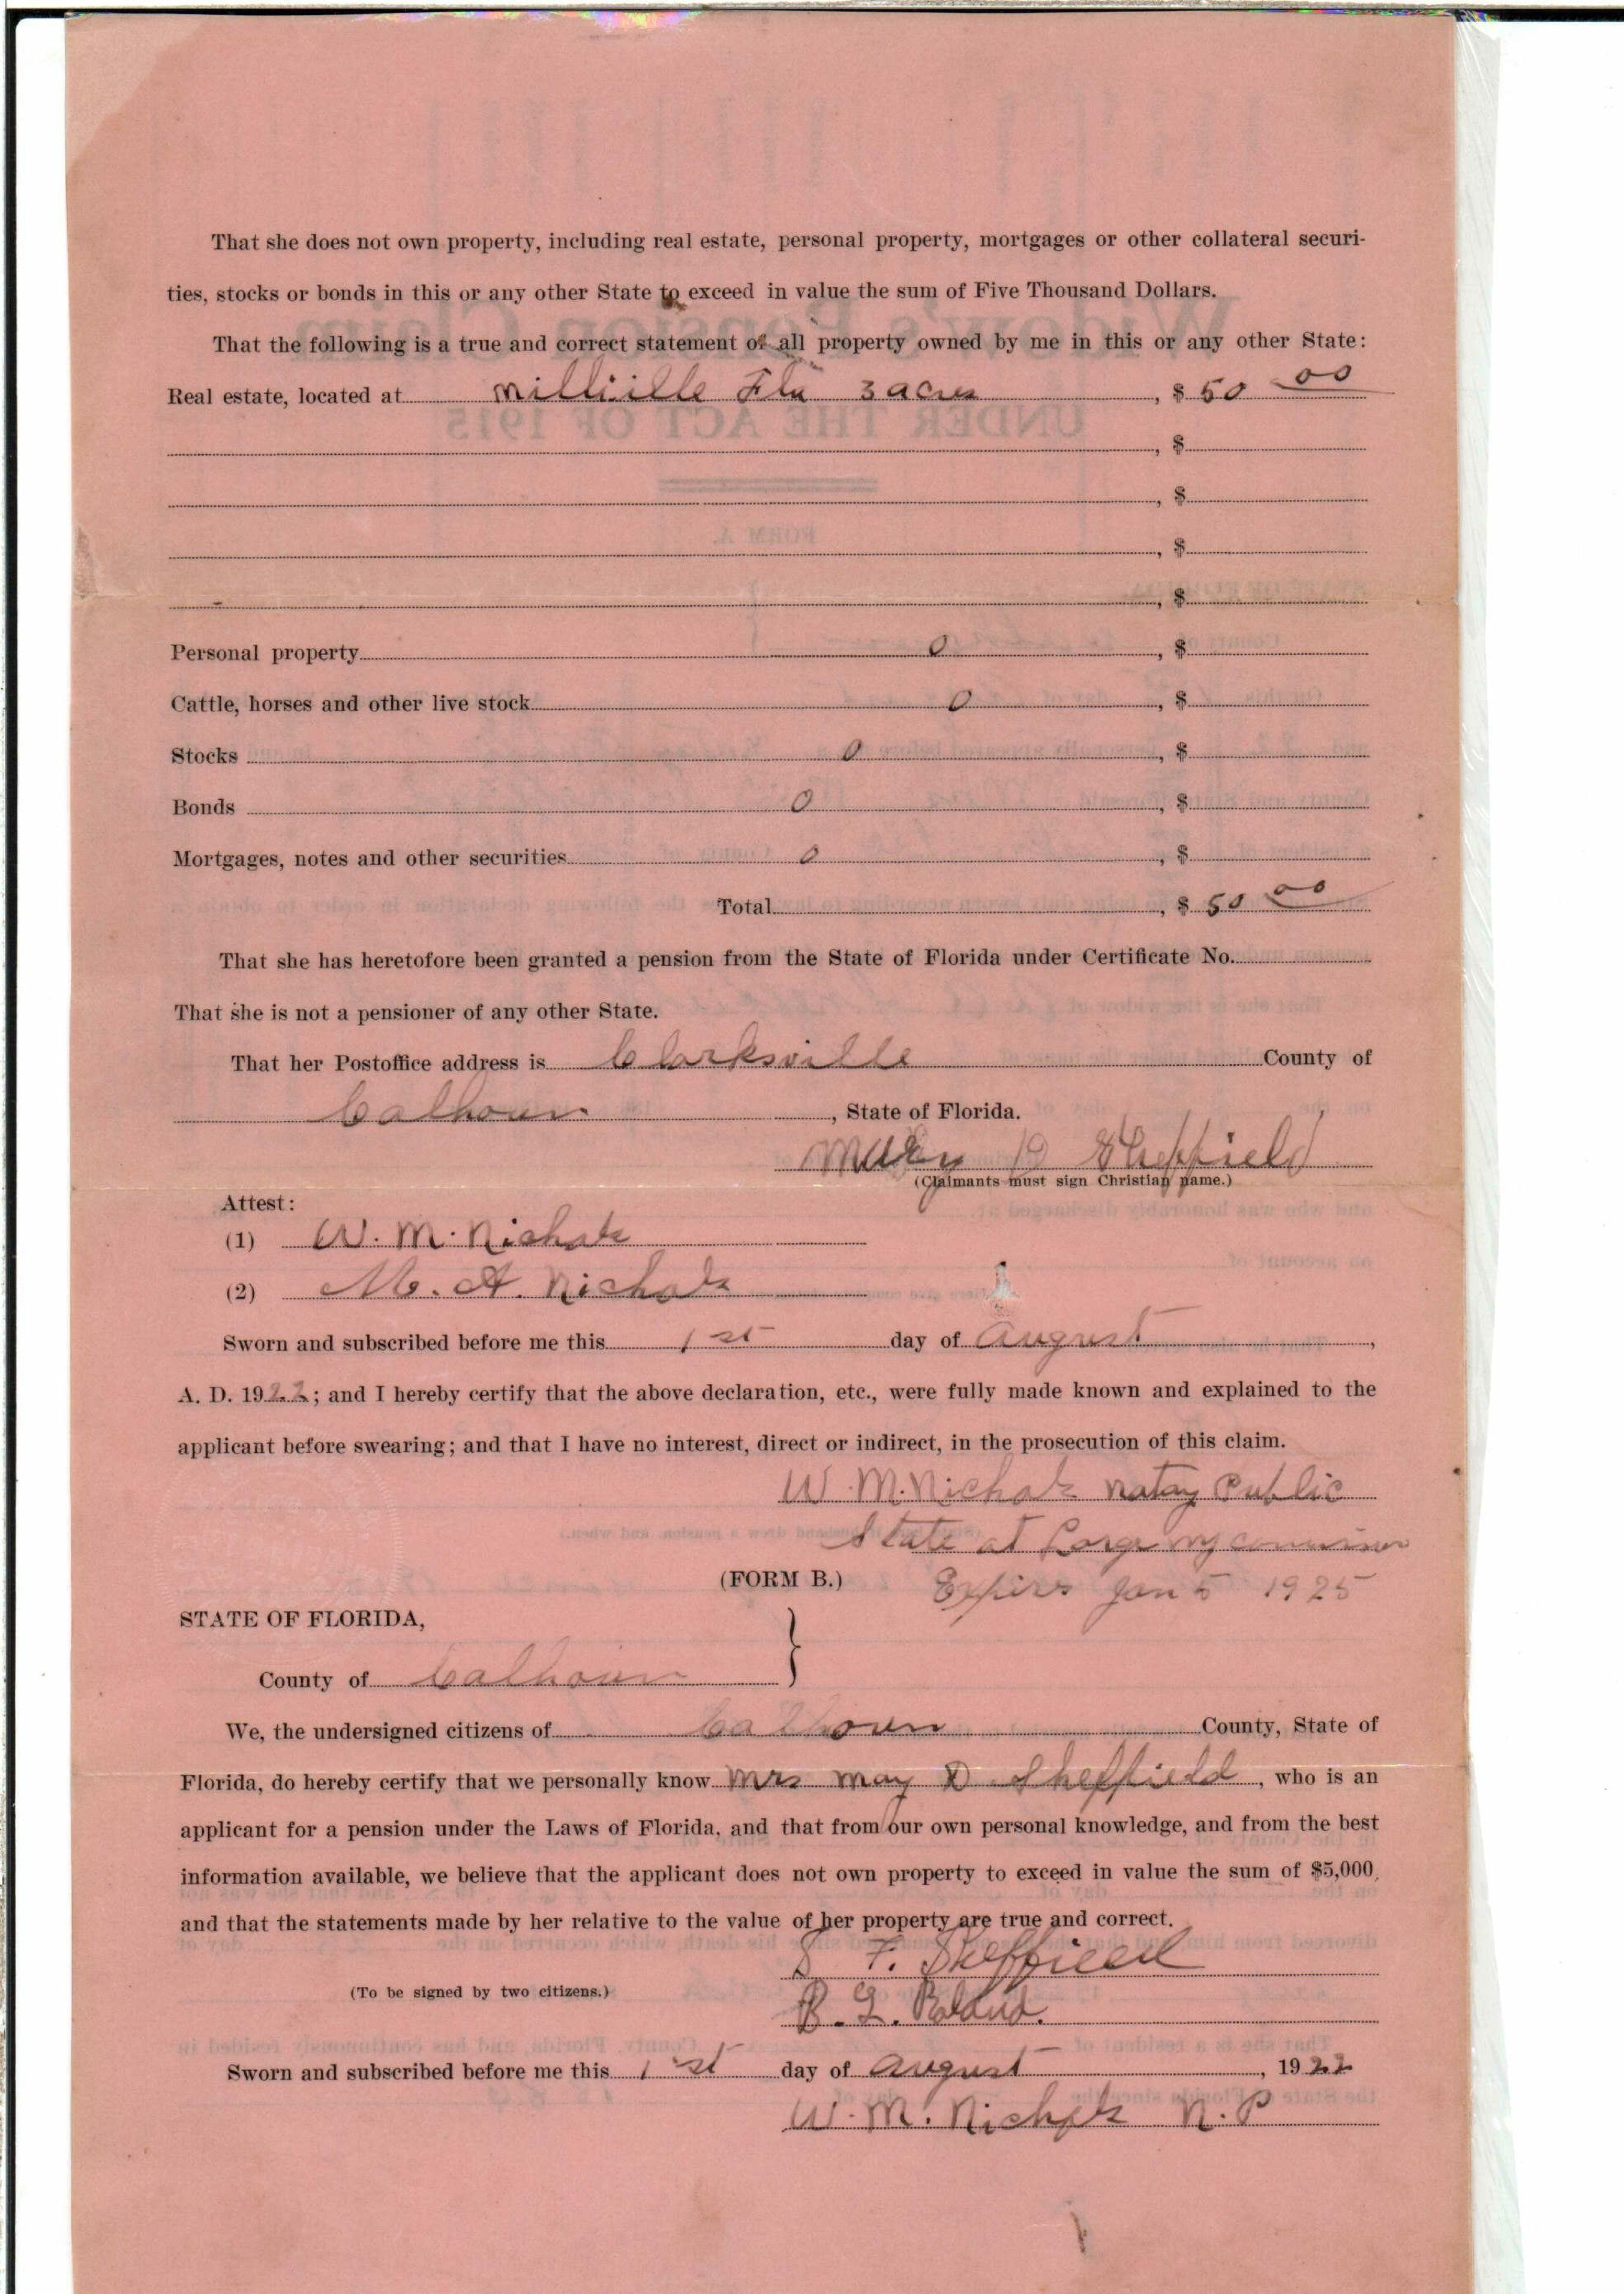 That she does not own property, including real estate, personal property, mortgages or other collateral securi-
ties, stocks or bonds in this or any other State to exceed in value the sum of Five Thousand Dollars.
That the following is a true and correct statement of all property owned by me in this or any other State:
Real estate, located at Millville Fla 3 acres, $ 50 00
, $
, $
, $
, $
Personal property 0, $
Cattle, horses and other live stock 0, $
Stocks 0, $
Bonds 0, $
Mortgages, notes and other securities 0, $
Total, $ 50 00
That she has heretofore been granted a pension from the State of Florida under Certificate No.
That she is not a pensioner of any other State.
That her Postoffice address is Clarksville County of
Calhoun, State of Florida.
D Sheffield
(Claimants must sign Christian name.)
Attest:
(1) W. M. Nichols
(2) M. A. Nichols
Sworn and subscribed before me this 1st day of August,
A. D. 1922; and I hereby certify that the above declaration, etc., were fully made known and explained to the
applicant before swearing; and that I have no interest, direct or indirect, in the prosecution of this claim.
W. M. Nichols Notary Public
State at Large my
(FORM B.) Expires Jan 5 1925
STATE OF FLORIDA,
County of Calhoun }
We, the undersigned citizens of Calhoun County, State of
Florida, do hereby certify that we personally know Mrs May D Sheffield, who is an
applicant for a pension under the Laws of Florida, and that from our own personal knowledge, and from the best
information available, we believe that the applicant does not own property to exceed in value the sum of $5,000,
and that the statements made by her relative to the value of her property are true and correct.
S F. Sheffield
(To be signed by two citizens.)
B. L.
Sworn and subscribed before me this 1st day of August, 1922
W. M. Nichols N. P